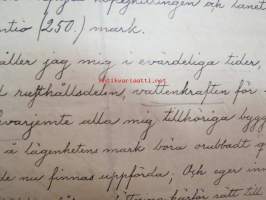 köpeskillingen och lånet
(250.) mark.
jag mig i evärdeliga tider,
rusthållsdelen, vattenkraften för
evarjemte alla mig tillhöriga bygg
å lägenhetens mark böra orubbadt q
de nu finnas uppförda; Och eger inn
rätt till
antikvariaatti.net